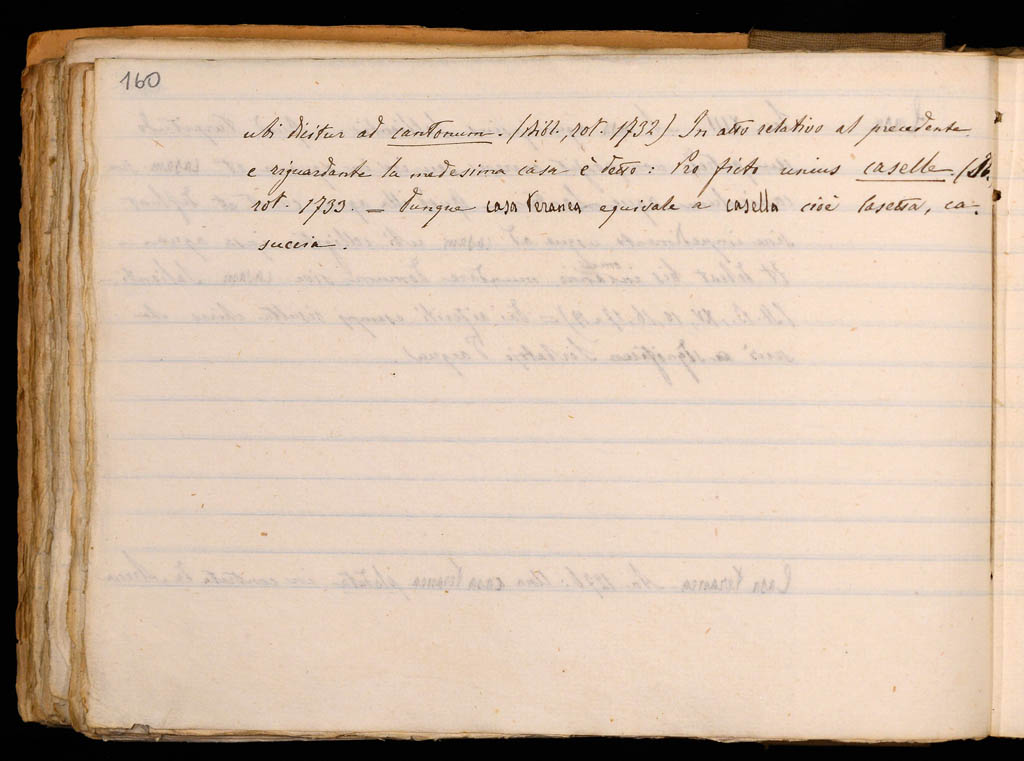 160
ubi dicitur ad cantonum. (Bibl., rot. 1732) In atto relativo al precedente
e riguardante la medesima casa è detto: Pro ficto unius caselle (Ib.
rot. 1733. — Dunque casa teranea equivale a casella cioè casetta, ca-
succia.